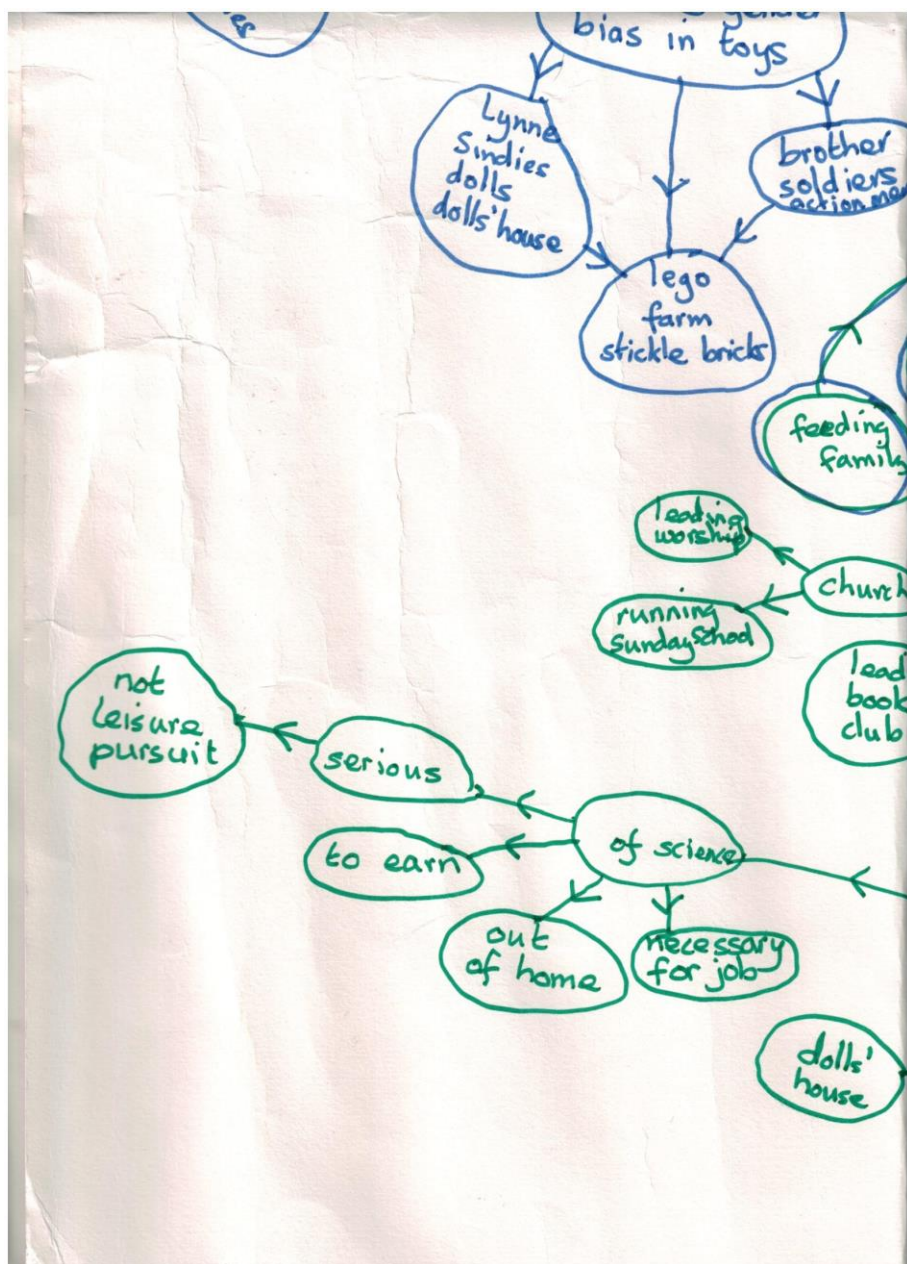 bias in toys
Lynne
Sindies
dolls
dolls' house
brother
soldiers
action me
lego
farm
stickle bricks
feeding
family
leading
worship
church
running
Sunday School
lead
book
club
not
leisure
pursuit
serious
of science
to earn
out
of home
necessary
for job
dolls'
house